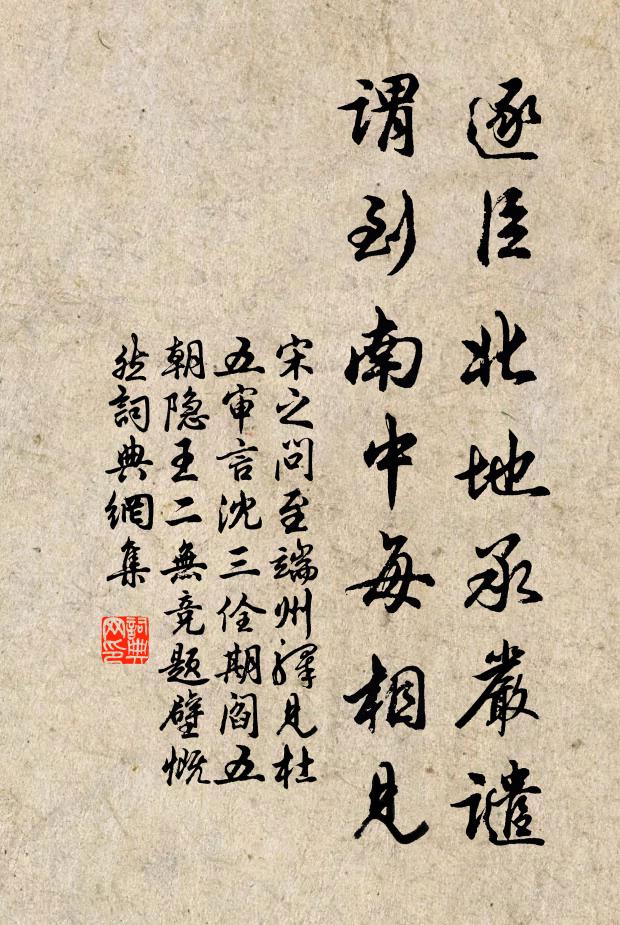 逐臣北地承嚴譴
謂到南中每相見
宋之問至端州驛見杜
五审言沈三佺期閻五
朝隐王二無竞題壁慨
然詞典網集
詞典
网印